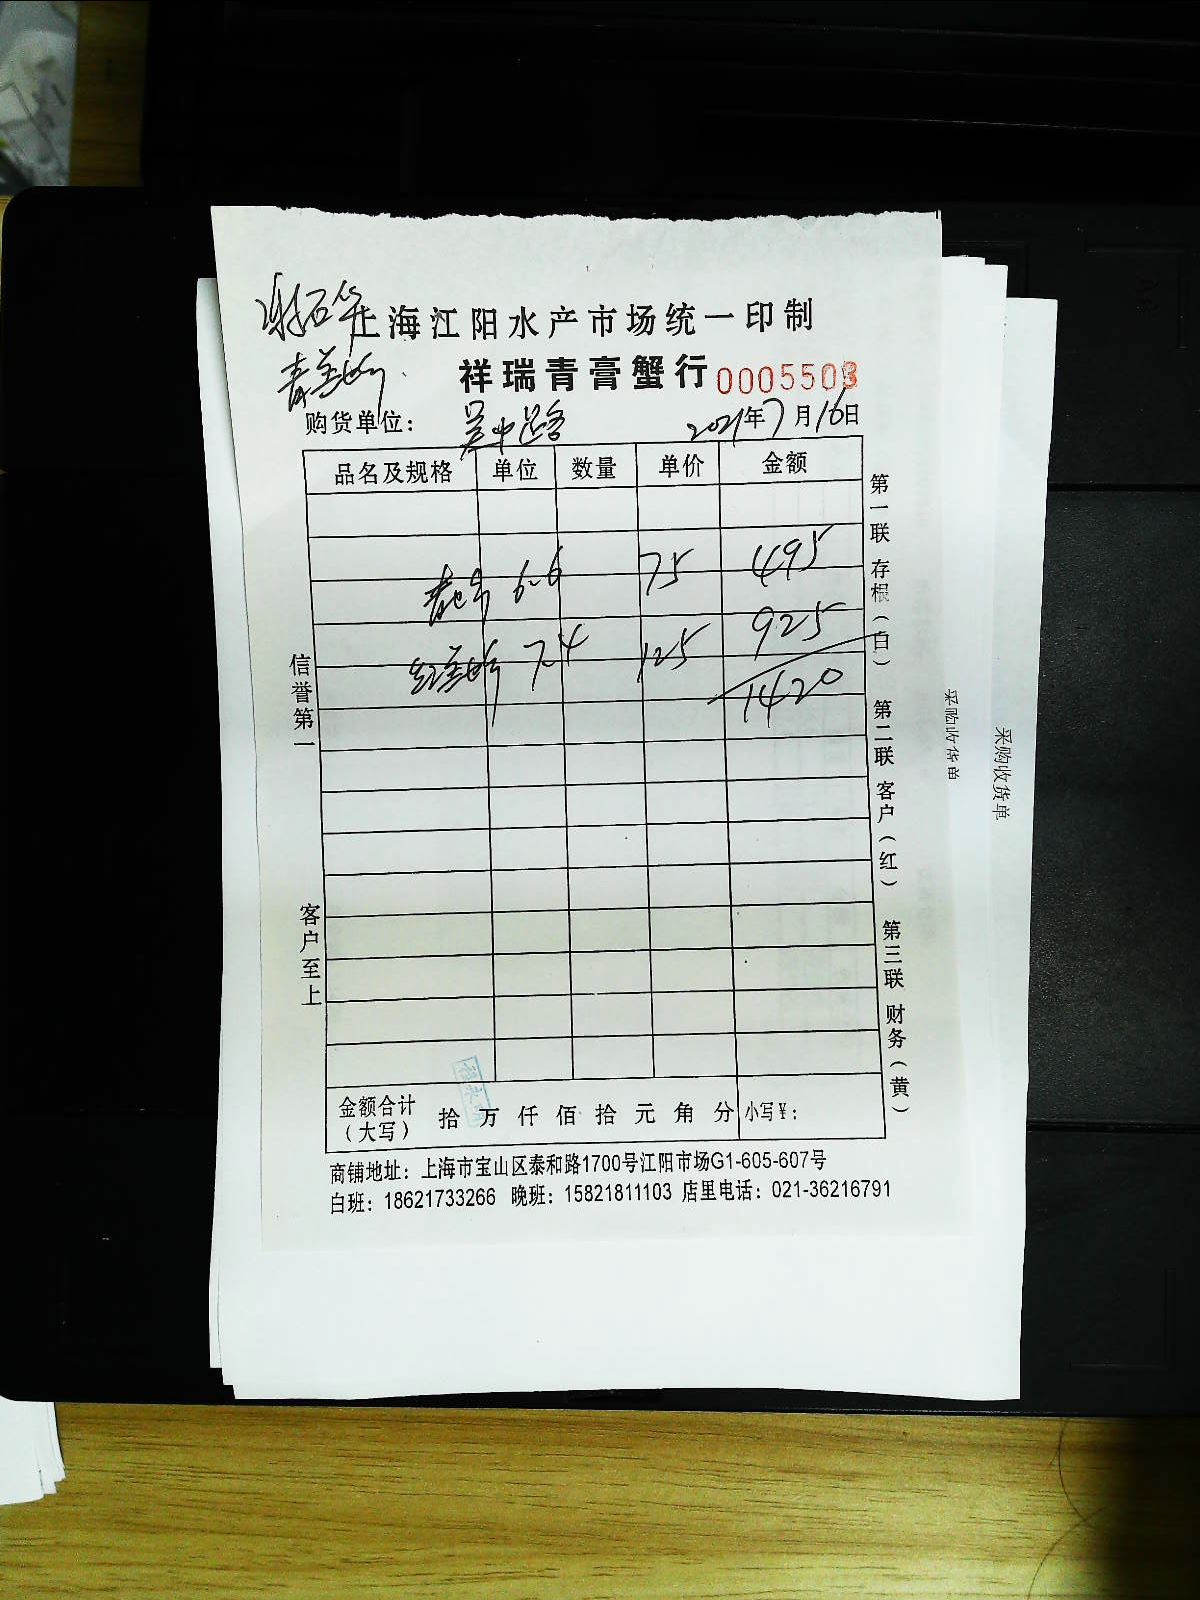 上海江阳水产市场统一印制
祥瑞青膏蟹行 0005503
购货单位： 吴中路 2021年7月16日
品名及规格 单位 数量 单价 金额
6-6 75 495
7-4 125 925
1420
信誉第一
客户至上
第一联 存根（白） 第二联 客户（红） 第三联 财务（黄）
金额合计（大写） 拾 万 仟 佰 拾 元 角 分 小写¥：
商铺地址：上海市宝山区泰和路1700号江阳市场G1-605-607号
白班：18621733266 晚班：15821811103 店里电话：021-36216791
采购收货单
采购收货单